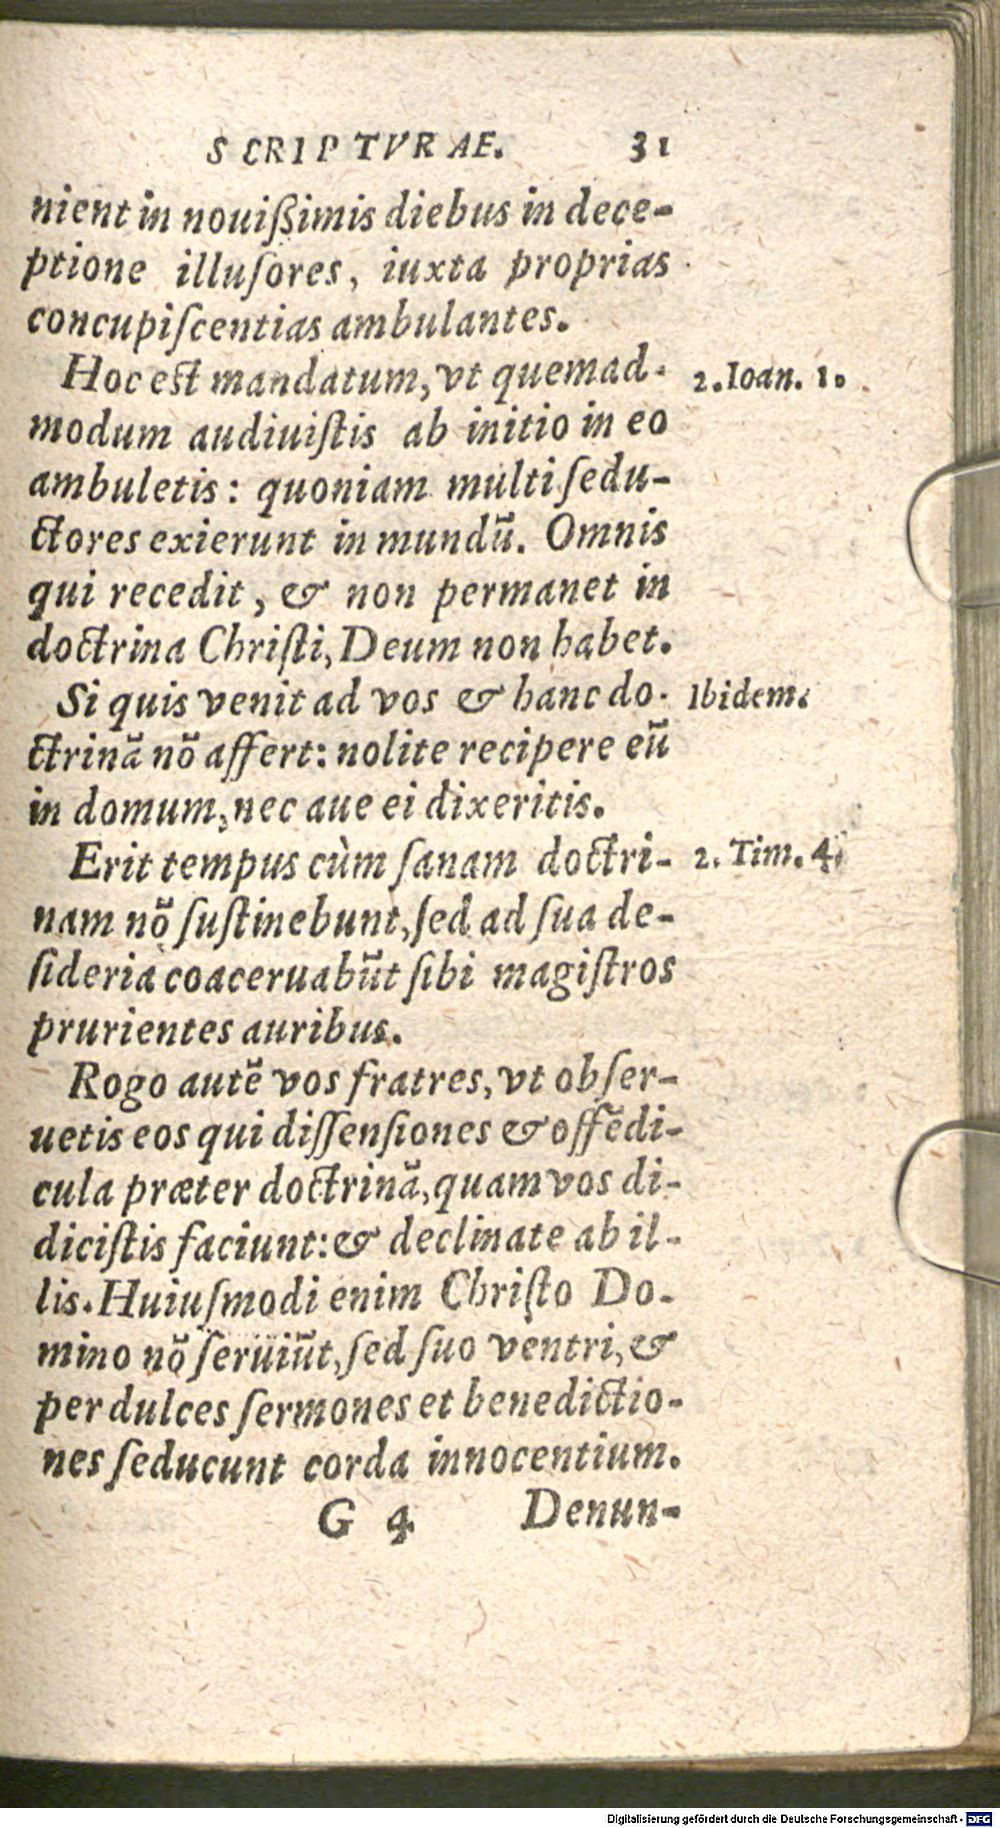 SCRIPTVRAE. 31
nient in nouißimis diebus in dece-
ptione illuſores, iuxta proprias
concupiſcentias ambulantes.
Hoc est mandatum, vt quemad- 2. Ioan. 1.
modum audiuiſtis ab initio in eo
ambuletis: quoniam multi ſedu-
ctores exierunt in mundũ. Omnis
qui recedit, & non permanet in
doctrina Chriſti, Deum non habet.
Si quis venit ad vos & hanc do- Ibidem.
ctrinã nõ affert: nolite recipere eũ
in domum, nec aue ei dixeritis.
Erit tempus cùm ſanam doctri- 2. Tim. 4.
nam nõ ſuſtinebunt, ſed ad ſua de-
ſideria coaceruabũt ſibi magiſtros
prurientes auribus.
Rogo autẽ vos fratres, vt obſer-
uetis eos qui diſſenſiones & offẽdi-
cula præter doctrinã, quam vos di-
diciſtis faciunt: & declinate ab il-
lis. Huiuſmodi enim Chriſto Do-
mino nõ ſeruiũt, ſed ſuo ventri, &
per dulces ſermones et benedictio-
nes ſeducunt corda innocentium.
G 4 Denun-
Digitalisierung gefördert durch die Deutsche Forschungsgemeinschaft - DFG